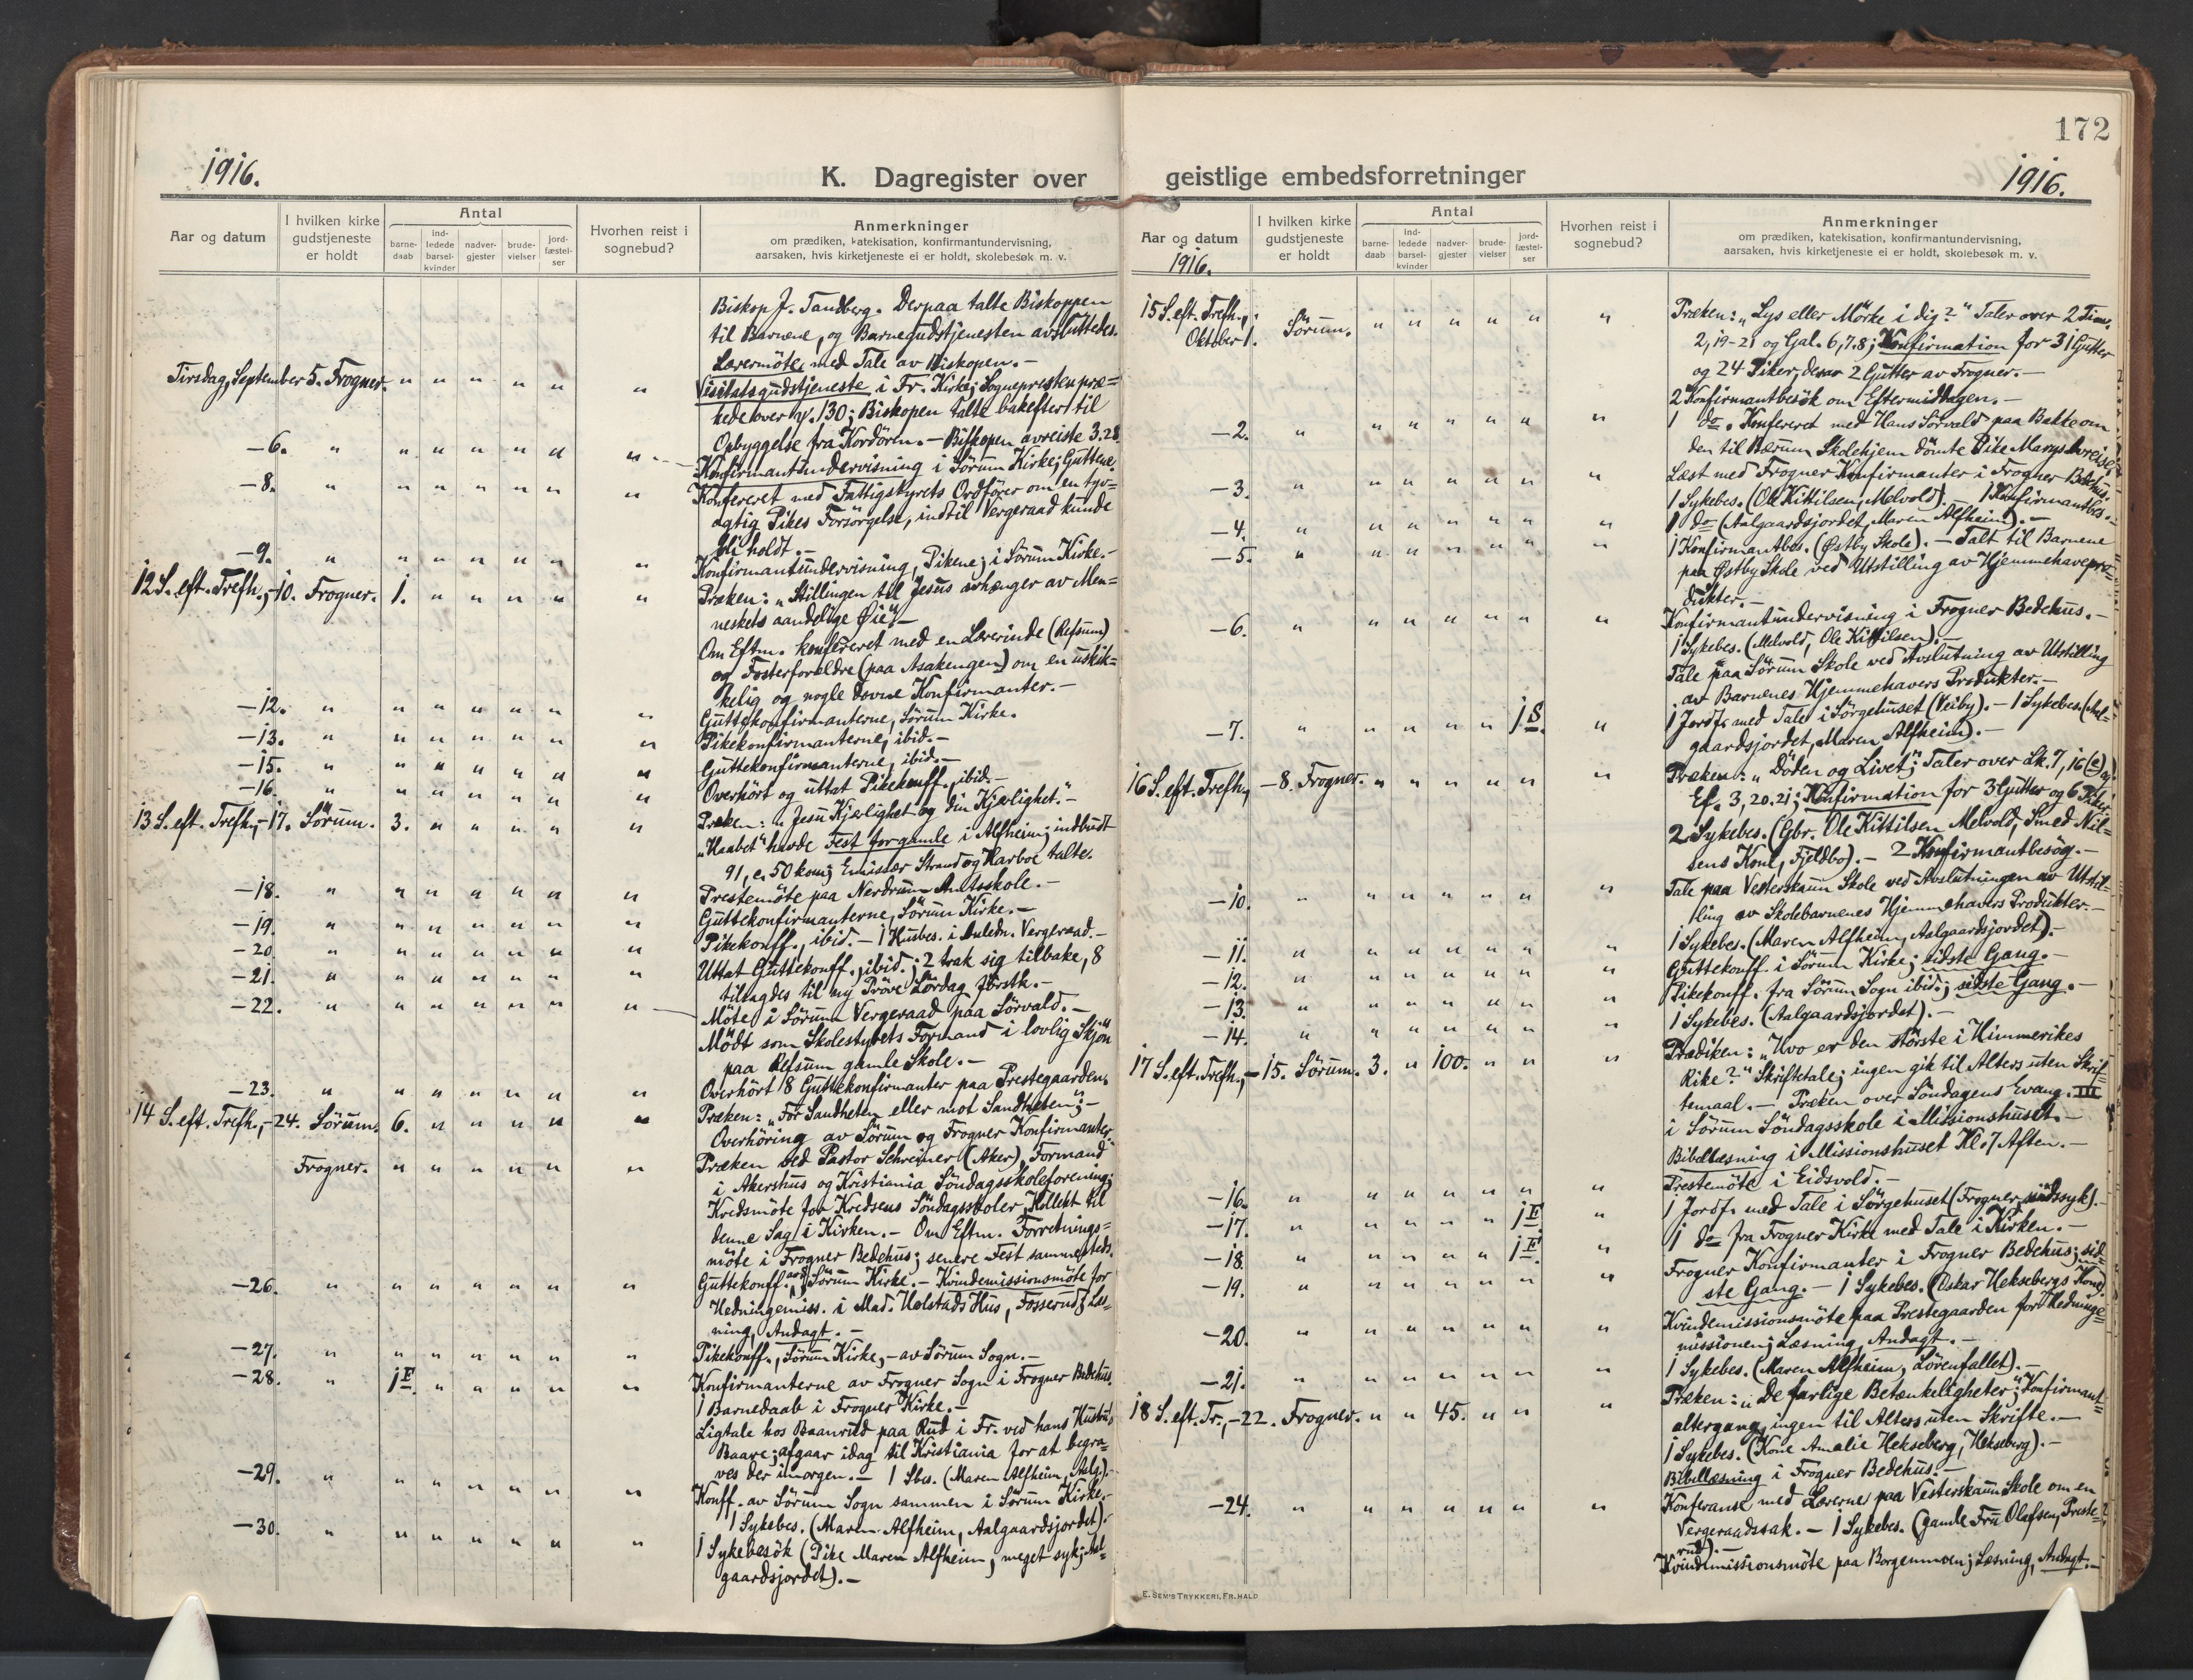 172
1916.
K. Dagregister over
geistlige embedsforretninger
1916.
Aar og datum
I hvilken kirke gudstjeneste er holdt
Antal
barne-daab
ind-ledede barsel-kvinder
nadver-gjester
brude-vielser
jord-fæstel-ser
Hvorhen reist i sognebud?
Anmerkninger
om prædiken, katekisation, konfirmantundervisning,
aarsaken, hvis kirketjeneste ei er holdt, skolebesøk m. v.
Biskop J. Tandberg. Derpaa talte Biskoppen
til Barnene, og Barnegudstjenesten avsluttedes.
Lærermöte med Tale av Biskopen.-
Tirsdag, September 5. Frogner. " " " " " " Visitatsgudstjeneste i Fr. Kirke; Sognepresten præ=
kede over 130; Biskopen talte bakefter til
Opbyggelse fra Kordören.- Biskopen avreiste 3.28.
-6. " " " " " " " Konfirmantundervisning i Sörum Kirke; Guttene.
-8. " " " " " " " Konfereret med Fattigstyrets Ordförer om en tyv=
agtig Pikes Forsörgelse, indtil Vergeraad kunde
bli holdt.-
-9. " " " " " " " Konfirmantundervisning, Pikene; i Sörum Kirke.-
12 S. eft. Trefh.,-10. Frogner. 1. " " " " " Præken: "Stillingen til Jesus avhænger av Men=
neskets aandelige Øie".-
Om Eftm. konfereret med en Lærerinde (Refsum)
og Fosterforældre (paa Asakengen) om en uskik=
kelig og nogle dovne Konfirmanter.-
-12. " " " " " " " Guttekonfirmanterne, Sörum Kirke.
-13. " " " " " " " Pikekonfirmanterne, ibid.-
-15. " " " " " " " Guttekonfirmanterne, ibid.-
-16. " " " " " " " Overhört og uttat Pikekonff., ibid.-
13 S. eft. Trefh.,-17. Sörum. 3. " " " " " Præken: "Jesu Kjærlighet og din Kjærlighet."-
"Haabet" havde Fest for gamle i Alfheim; indbudt
91, c. 50 kom; Emissær Strand og Harboe talte.
-18. " " " " " " " Prestemöte paa Nerdrum Amtsskole.-
-19. " " " " " " " Guttekonfirmanterne, Sörum Kirke.-
-20. " " " " " " " Pikekonff., ibid.- 1 Husbes. i Anledn. Vergeraad.-
-21. " " " " " " " Uttat Guttekonff., ibid.; 2 trak sig tilbake, 8
tilsagdes til ny Pröve Lördag förstk.-
-22. " " " " " " " Möte i Sörum Vergeraad paa Sörvald.-
Mödt som Skolestyrets Formand i lovlig Skjön
paa Refsum gamle Skole.-
-23. " " " " " " " Overhört 8 Guttekonfirmanter paa Prestegaarden.
14 S. eft. Trefh.,-24. Sörum. 6. " " " " " Præken: "For Sandheten eller mot Sandheten";-
Overhöring av Sörum og Frogner Konfirmanter.
Frogner. " " " " " " Præken ved Pastor Schreiner (Aker), Formand
i Akershus og Kristiania Söndagsskoleforening;
Kredsmöte for Kredsens Söndagsskoler, Kollekt til
denne Sag i Kirken.- Om Eftm. Forretnings=
möte i Frogner Bedehus; senere Fest sammesteds.
-26. " " " " " " " Guttekonff. Sörum Kirke.- Kvindemissionsmöte for
Hedningemiss. i Mad. Holstads Hus, Fosserud; Læs=
ning, Andagt.-
-27. " " " " " " " Pikekonff., Sörum Kirke,- av Sörum Sogn.-
-28. " 1 F. " " " " " Konfirmanterne av Frogner Sogn i Frogner Bedehus.
1 Barnedaab i Frogner Kirke.-
Ligtale hos Baanrud paa Rud i Fr. ved hans Hustrus
Baare; afgaar idag til Kristiania for at begra=
ves der imorgen.- 1 Sbes. (Maren Alfheim, Aalg.).
-29. " " " " " " " Konff. av Sörum Sogn sammen i Sörum Kirke.-
1 Sykebes. (Maren Alfheim, Aalgaardsjordet).-
-30. " " " " " " " 1 Sykebesök (Pike Maren Alfheim; meget syk; Aal=
gaardsjordet).-
Aar og datum
1916.
I hvilken kirke gudstjeneste er holdt
Antal
barne-daab
ind-ledede barsel-kvinder
nadver-gjester
brude-vielser
jord-fæstel-ser
Hvorhen reist i sognebud?
Anmerkninger
om prædiken, katekisation, konfirmantundervisning,
aarsaken, hvis kirketjeneste ei er holdt, skolebesøk m. v.
15 S. eft. Trefh., Oktober 1. Sörum. " " " " " " Præken: "Lys eller Mörke i dig?" Taler over 2 Tim.
2, 19-21 og Gal. 6, 7.8; Konfirmation for 31 Gutter
og 24 Piker, derav 2 Gutter av Frogner.-
2 Konfirmantbesök om Eftermiddagen.-
-2. " " " " " " " 1 do. Konfereret med Hans Sörvald paa Bakke om
den til Bærum Skolehjem dömte Pike Marys Avreise.
-3. " " " " " " " Læst med Frogner Konfirmanter i Frogner Bedehus.
1 Sykebes. (Ole Kittilsen, Melvold).- 1 Konfirmantbes.-
-4. " " " " " " " 1 do (Aalgaardsjordet, Maren Alfheim).-
-5. " " " " " " " 1 Konfirmantbes. (Østby Skole).- Talt til Barnene
paa Østby Skole ved Utstilling av Hjemmehavepro=
dukter.-
-6. " " " " " " " Konfirmantundervisning i Frogner Bedehus.-
1 Sykebes. (Melvold, Ole Kittilsen).-
Tale paa Sörum Skole ved Avslutning av Utstilling
av Barnenes Hjemmehavers Produkter.-
-7. " " " " " 1 S. " 1 Jordf. med Tale i Sörgehuset (Veiby).- 1 Sykebes. (Aal=
gaardsjordet, Maren Alfheim).-
16 S. eft. Trefh., -8. Frogner. " " " " " " Præken: "Döden og Livet"; Taler over Lk. 7, 16 og
Ef. 3, 20.21; Konfirmation for 3 Gutter og 6 Piker.
2 Sykebes. (Gbr. Ole Kittilsen Melvold, Smed Nil=
sens Kone, Fjeldbo).- 2 Konfirmantbesög.-
-10. " " " " " " " Tale paa Vesterskaun Skole ved Avslutningen av Utstil=
ling av Skolebarnenes Hjemmehavers Produkter.-
-11. " " " " " " " 1 Sykebes. (Maren Alfheim, Aalgaardsjordet).-
-12. " " " " " " " Guttekonff. i Sörum Kirke; sidste Gang.-
-13. " " " " " " " Pikekonff. fra Sörum Sogn ibid.; sidste Gang.-
-14. " " " " " " " 1 Sykebes. (Aalgaardsjordet).-
17 S. eft. Trefh.,-15. Sörum. 3. " 100. " " " Prædiken: "Hvo er den störste i Himmerikes
Rike?" Skriftetale; ingen gik til Alters uten Skrif=
temaal.- Præken over Söndagens Evang. III
i Sörum Söndagsskole i Missionshuset.-
Bibellæsning i Missionshuset Kl. 7 Aften.-
-16. " " " " " " " Prestemöte i Eidsvold.-
-17. " " " " " 1 F. " 1 Jordf. med Tale i Sörgehuset (Frogner, sidssyk).-
-18. " " " " " 1 F. " 1 do fra Frogner Kirke med Tale i Kirken.-
-19. " " " " " " " Frogner Konfirmanter i Frogner Bedehus; sid=
ste Gang.- 1 Sykebes. (Oskar Heksebergs Kone).
-20. " " " " " " " Kvindemissionsmöte paa Prestegaarden for Hedninge=
missionen; Læsning, Andagt.-
-21. " " " " " " " 1 Sykebes. (Maren Alfheim, Lörenfallet).-
18 S. eft. Tr.,-22. Frogner. " " 45. " " " Præken: "De farlige Betænkeligheter"; Konfirmant=
altergang, ingen til Alters uten Skrifte.-
1 Sykebes. (Kone Amalie Hekseberg, Hekseberg).-
Bibellæsning i Frogner Bedehus.-
-24. " " " " " " " Konferanse med Lærerne paa Vesterskaun Skole om en
Vergeraadssak.- 1 Sykebes. (gamle Fru Olafsen, Preste=
rud).-
Kvindemissionsmöte paa Borgenmoen; Læsning, Andagt.-
E. SEM'S TRYKKERI, FR.HALD